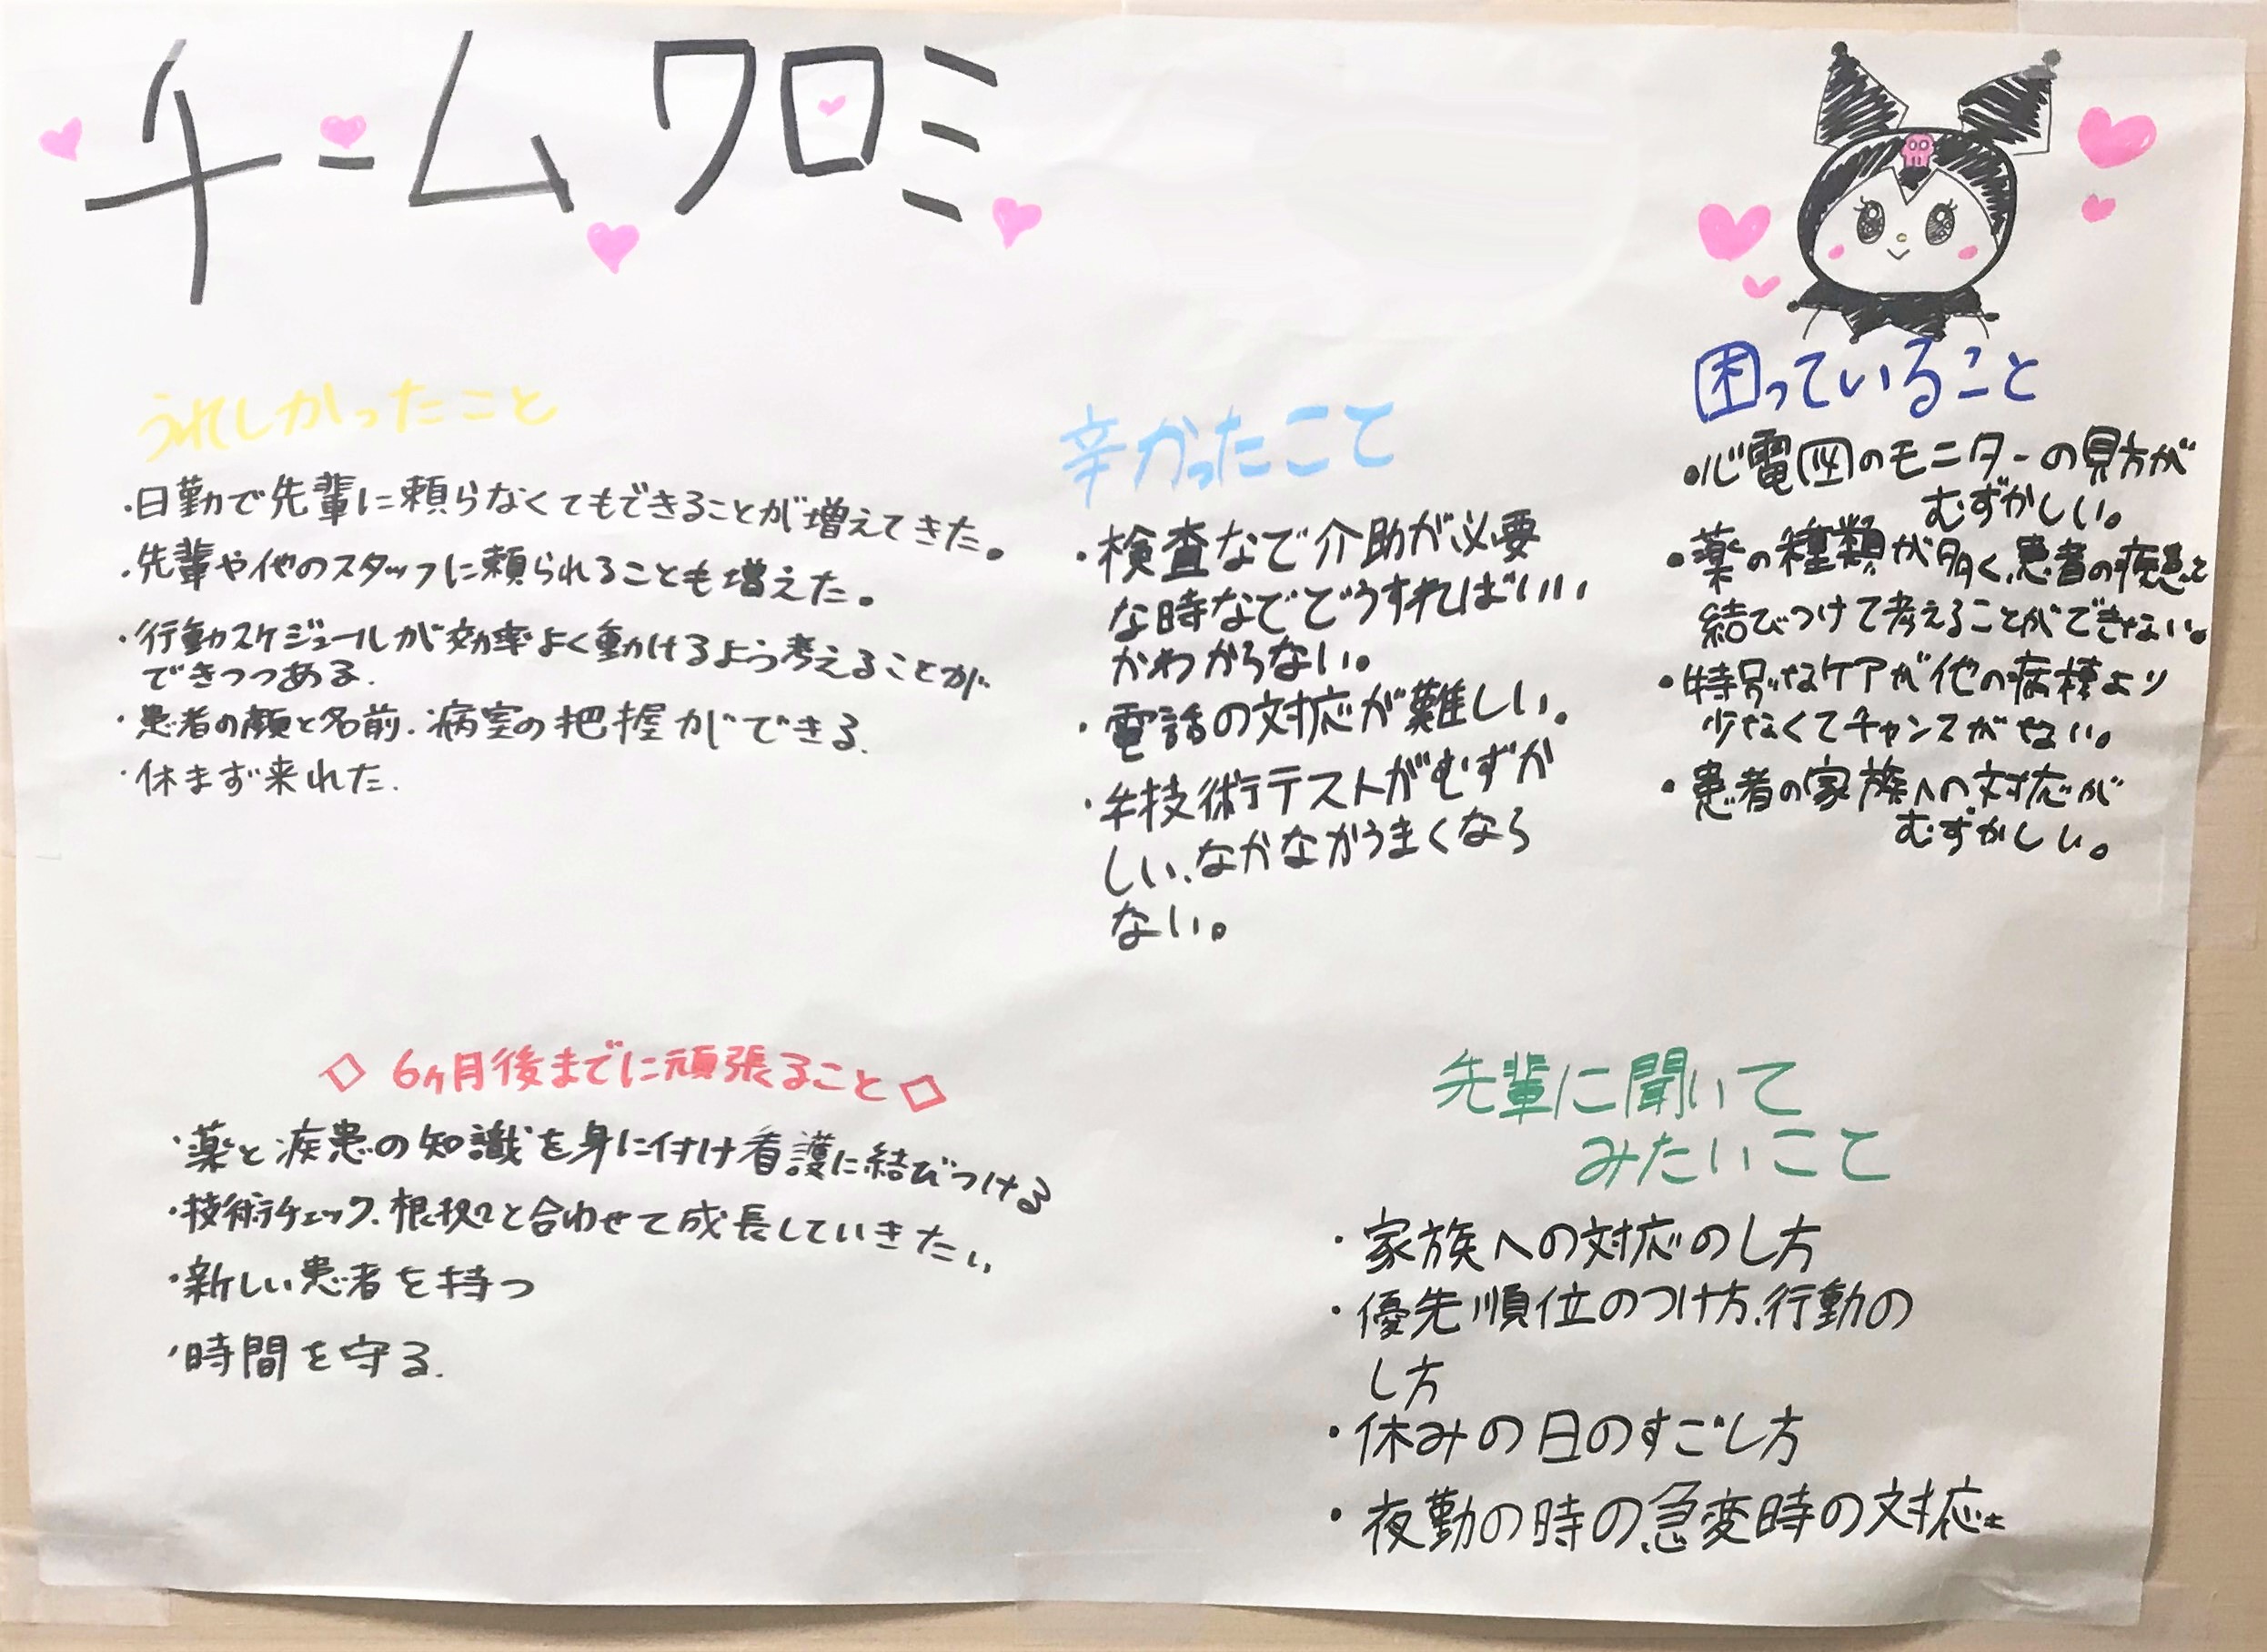 チームクロミ
うれしかったこと
・日勤で先輩に頼らなくてもできることが増えてきた。
・先輩や他のスタッフに頼られることも増えた。
・行動スケジュールが効率よく動けるよう考えることが
できつつある.
・患者の顔と名前.病室の把握ができる.
・休まず来れた.
辛かったこと
・検査などで介助が必要
な時などでどうすればいい
かわからない。
・電話の対応が難しい。
・技術テストがむずか
しい、なかなかうまくなら
ない。
困っていること
・心電図のモニターの見方が
むずかしい。
・薬の種類が多く、患者の疾患と
結びつけて考えることができない。
・特別なケアが他の病棟より
少なくてチャンスがない。
・患者の家族への対応が
むずかしい。
◇ 6ヶ月後までに頑張ること ◇
・薬と疾患の知識を身に付け看護に結びつける
・技術チェック、根拠と合わせて成長していきたい
・新しい患者を持つ
・時間を守る.
先輩に聞いて
みたいこと
・家族への対応のし方
・優先順位のつけ方、行動の
し方
・休みの日のすごし方
・夜勤の時の急変時の対応